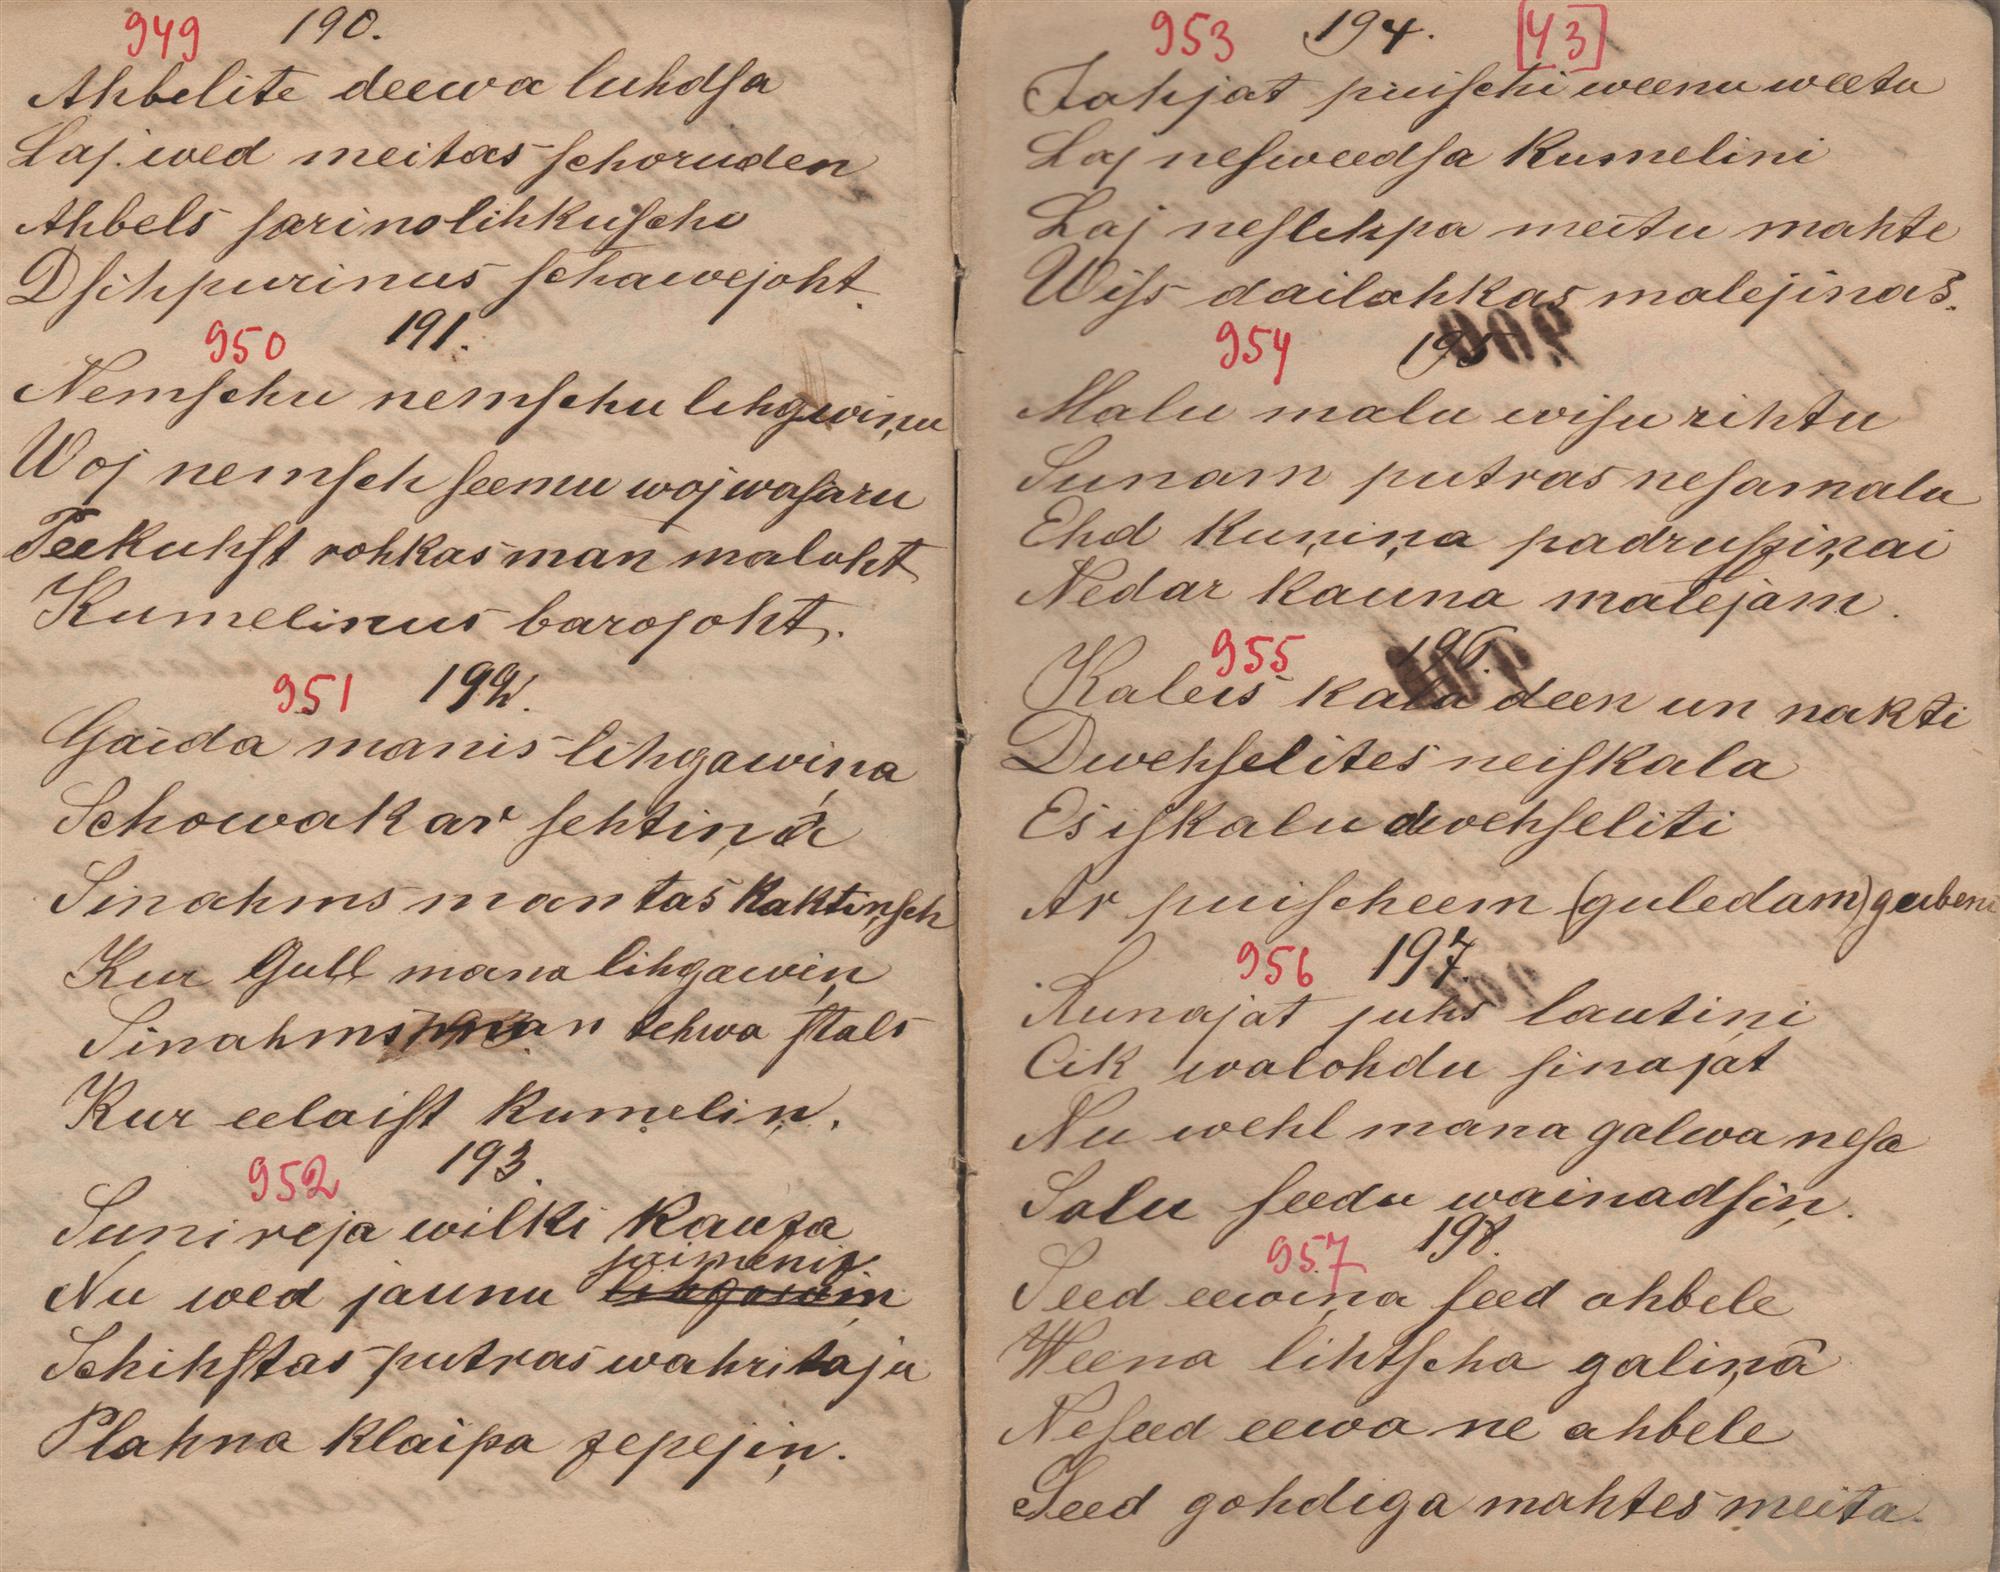 949 190.
Ahbelite deewa luhdsa
Laj wed meitas schoruden
Ahbels sarinolihkuscho
Dsihpurinus schawejoht.
950 191.
Nemschu nemschu lihgwiņu
Woj nemsch seemu woj wasaru
Pee kuhst rohkas man maloht
Kumelinus barojoht.
951 192.
Gaida manis lihgawiņa
Schowakar sehtiņá
Sinahms man tas kaktiņsch
Kur Gull mana lihgawiņ
Sinahms man tehwa stals
Kur eelaist kumeliņ.
952 193.
Suni reja wilki kauza
saimeniz
Nu wed jaunu lihgawiņ
Schihstas putras wahritaju
Plahna klaipa zepejiņ.
953 194. [43]
Jahjat puischi weenu weetu
Laj nesweedsa kumelini
Laj neslehpa meitu mahte
Wiss dailahkas malejinas.
954 195
Malu malu wisu rihtu
Sunam putras nesamalu
Ehd kuņiņa padrusziņai
Nedar kauna malejam.
955 196.
Kaleis kala deen un nakti
Dwehselites neiskala
Es iskalu dwehseliti
Ar puischeem (guledam) gubeni
956 197.
Runajat juhs lautiņi
Cik walohdu sinajat
Nu wehl mana galwa nesa
Salu seedu wainadsiņ.
957 198.
Seed eewiņa seed ahbele
Weena lihtscha galiņâ
Neseed eewa ne ahbele
Seed gohdiga mahtes meita.